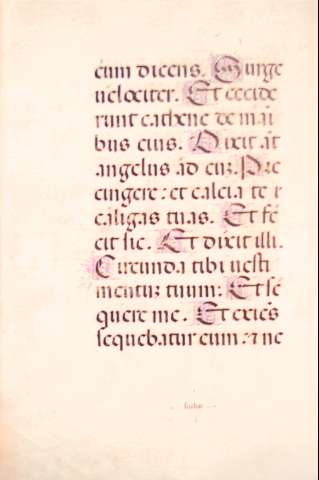 eum dicens. Surge
velociter. Et cecide
runt cathene de mai
bus eius. Dixit at
angelus ad eu3. Pre
cingere: et calcia te
caligas tuas. Et fe
cit sic. Et dixit illi.
Circunda tibi vesti
mentu3 tuum: Et se
quere me. Et exies
sequebatur eum: 7 ne